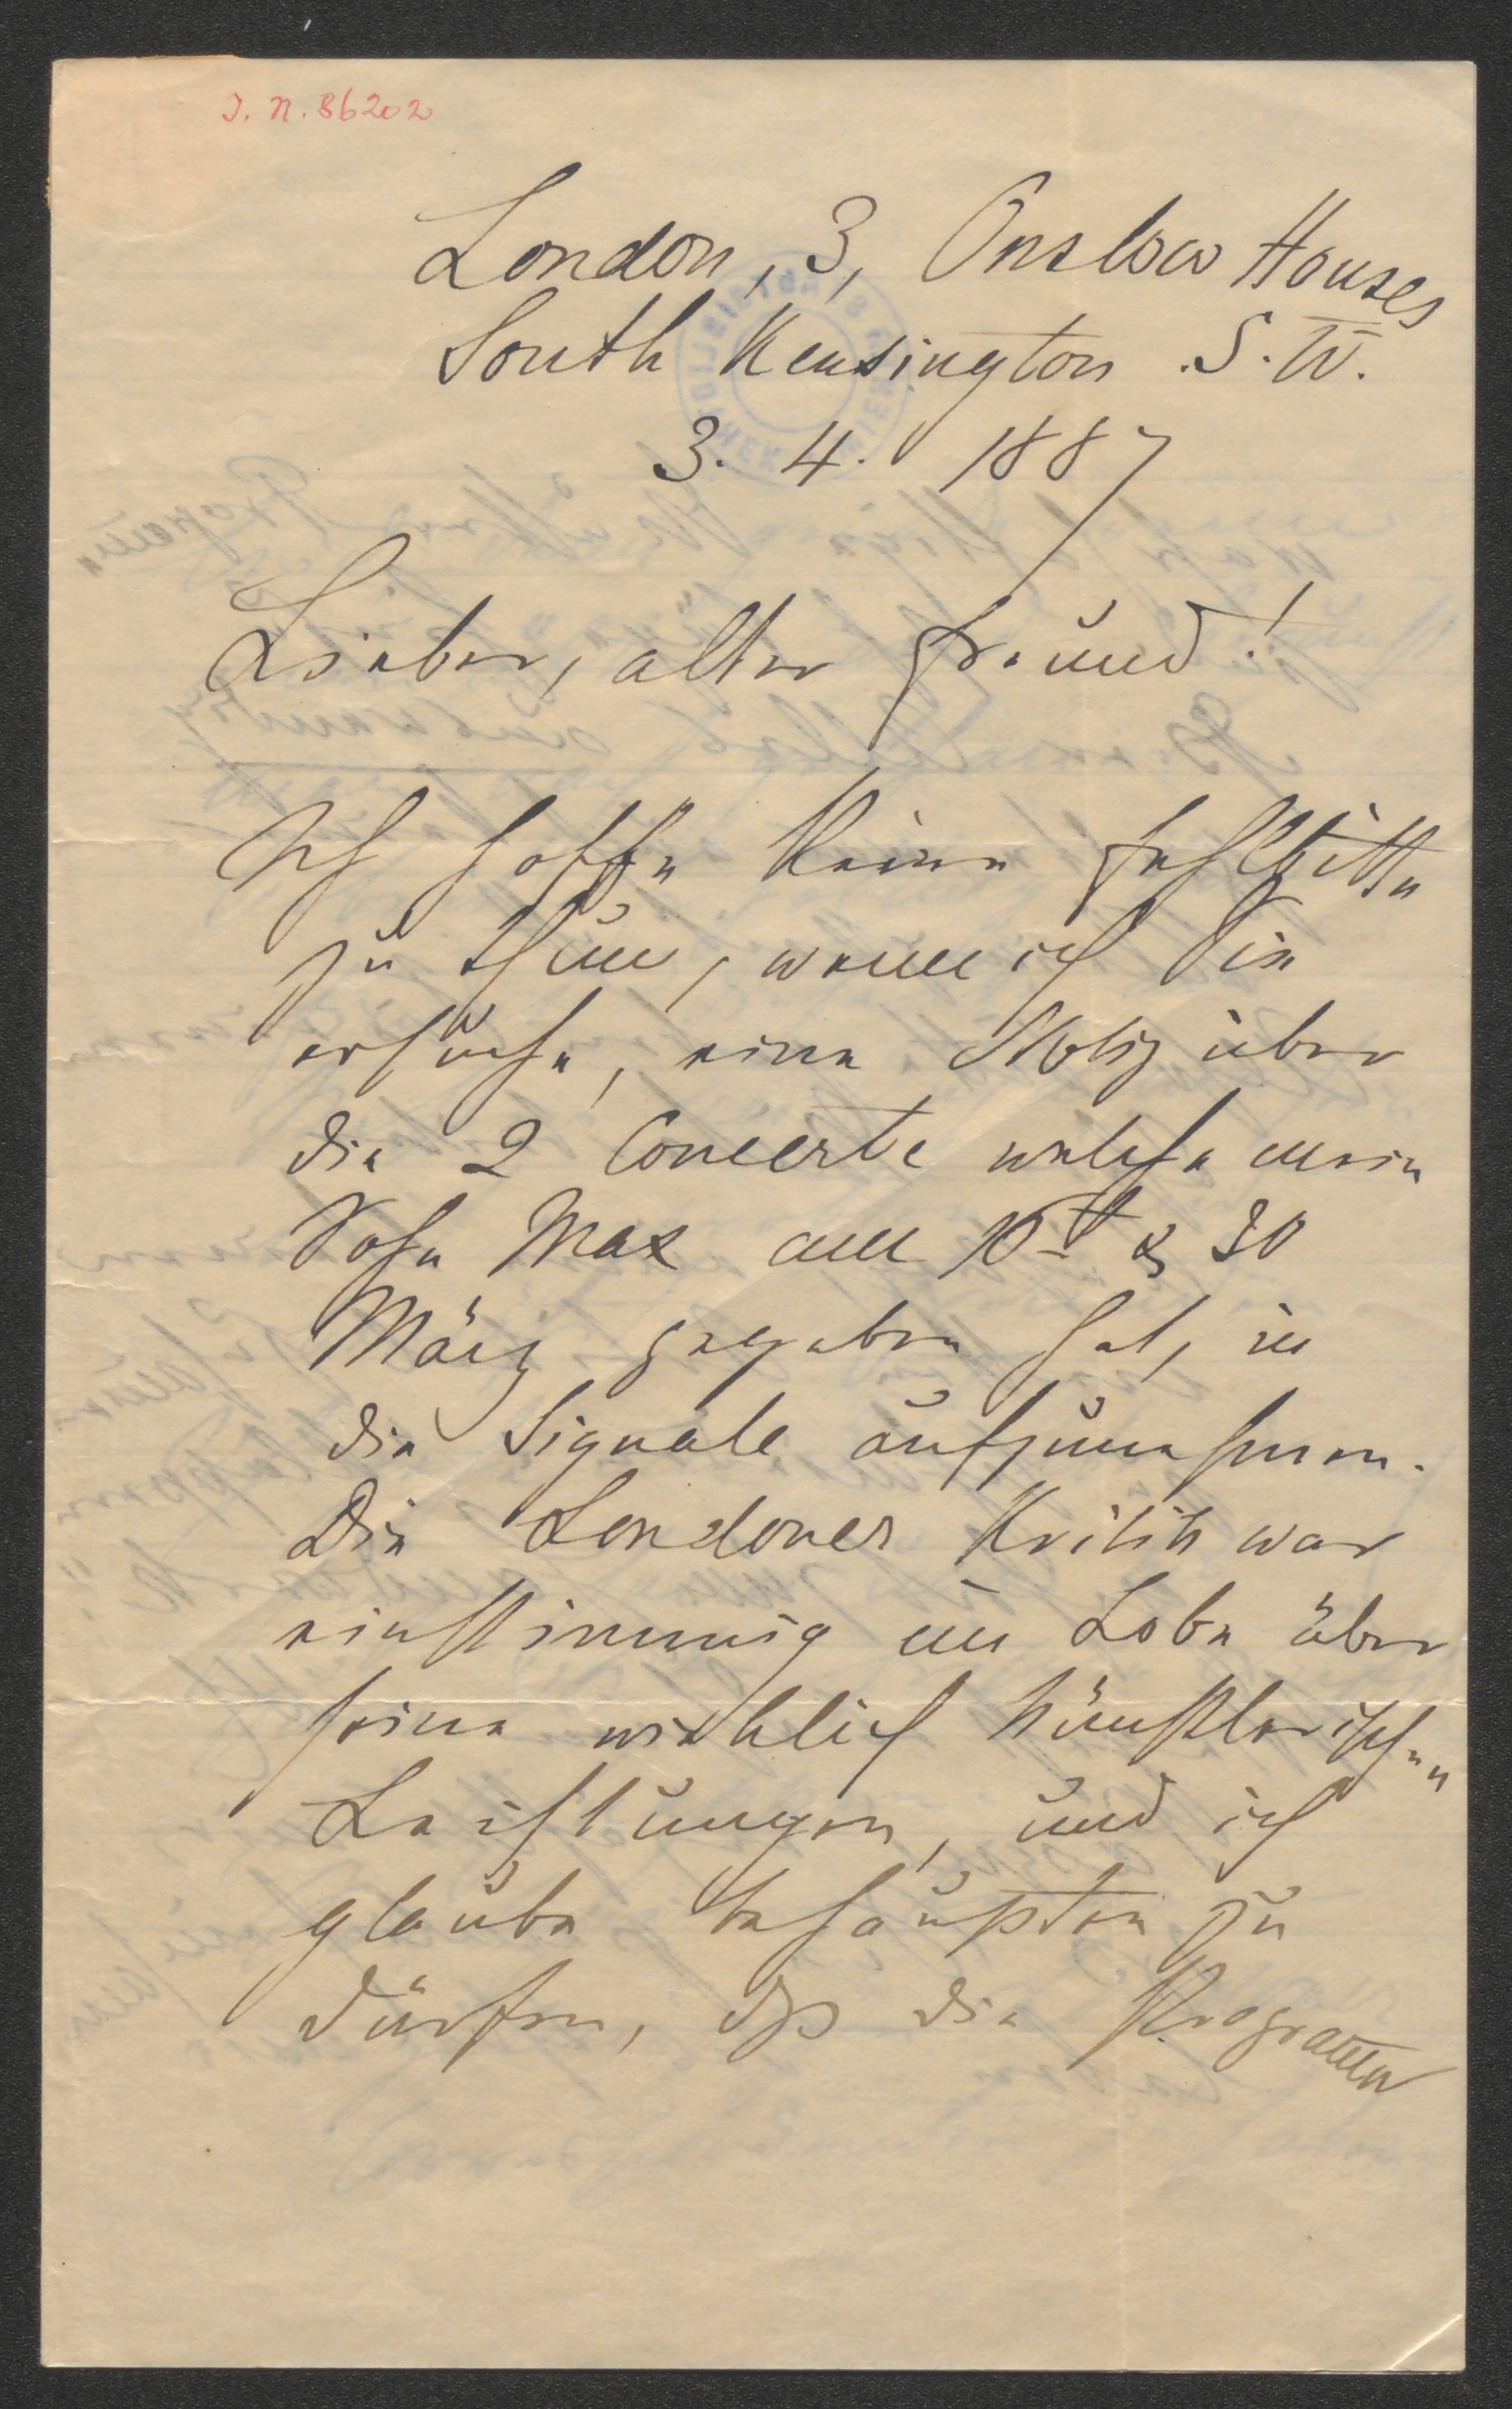 J. N. 86202
London, 3, Onslow Houses
South Kensington S. W.
3. 4. 1887
Lieber, alter Freund!
Ich hoffe keine Fehlbitte
zu thun, wenn ich Sie
ersuche, eine Notiz über
die 2 Concerte welche mein
Sohn Max am & 30
März gegeben hat, in
die Signale aufzunehmen.
Die Londoner Kritik war
einstimmig im Lobe über
seine wirklich künstlerischen
Leistungen, und ich
glaube behaupten zu
dürfen, dß die Programme